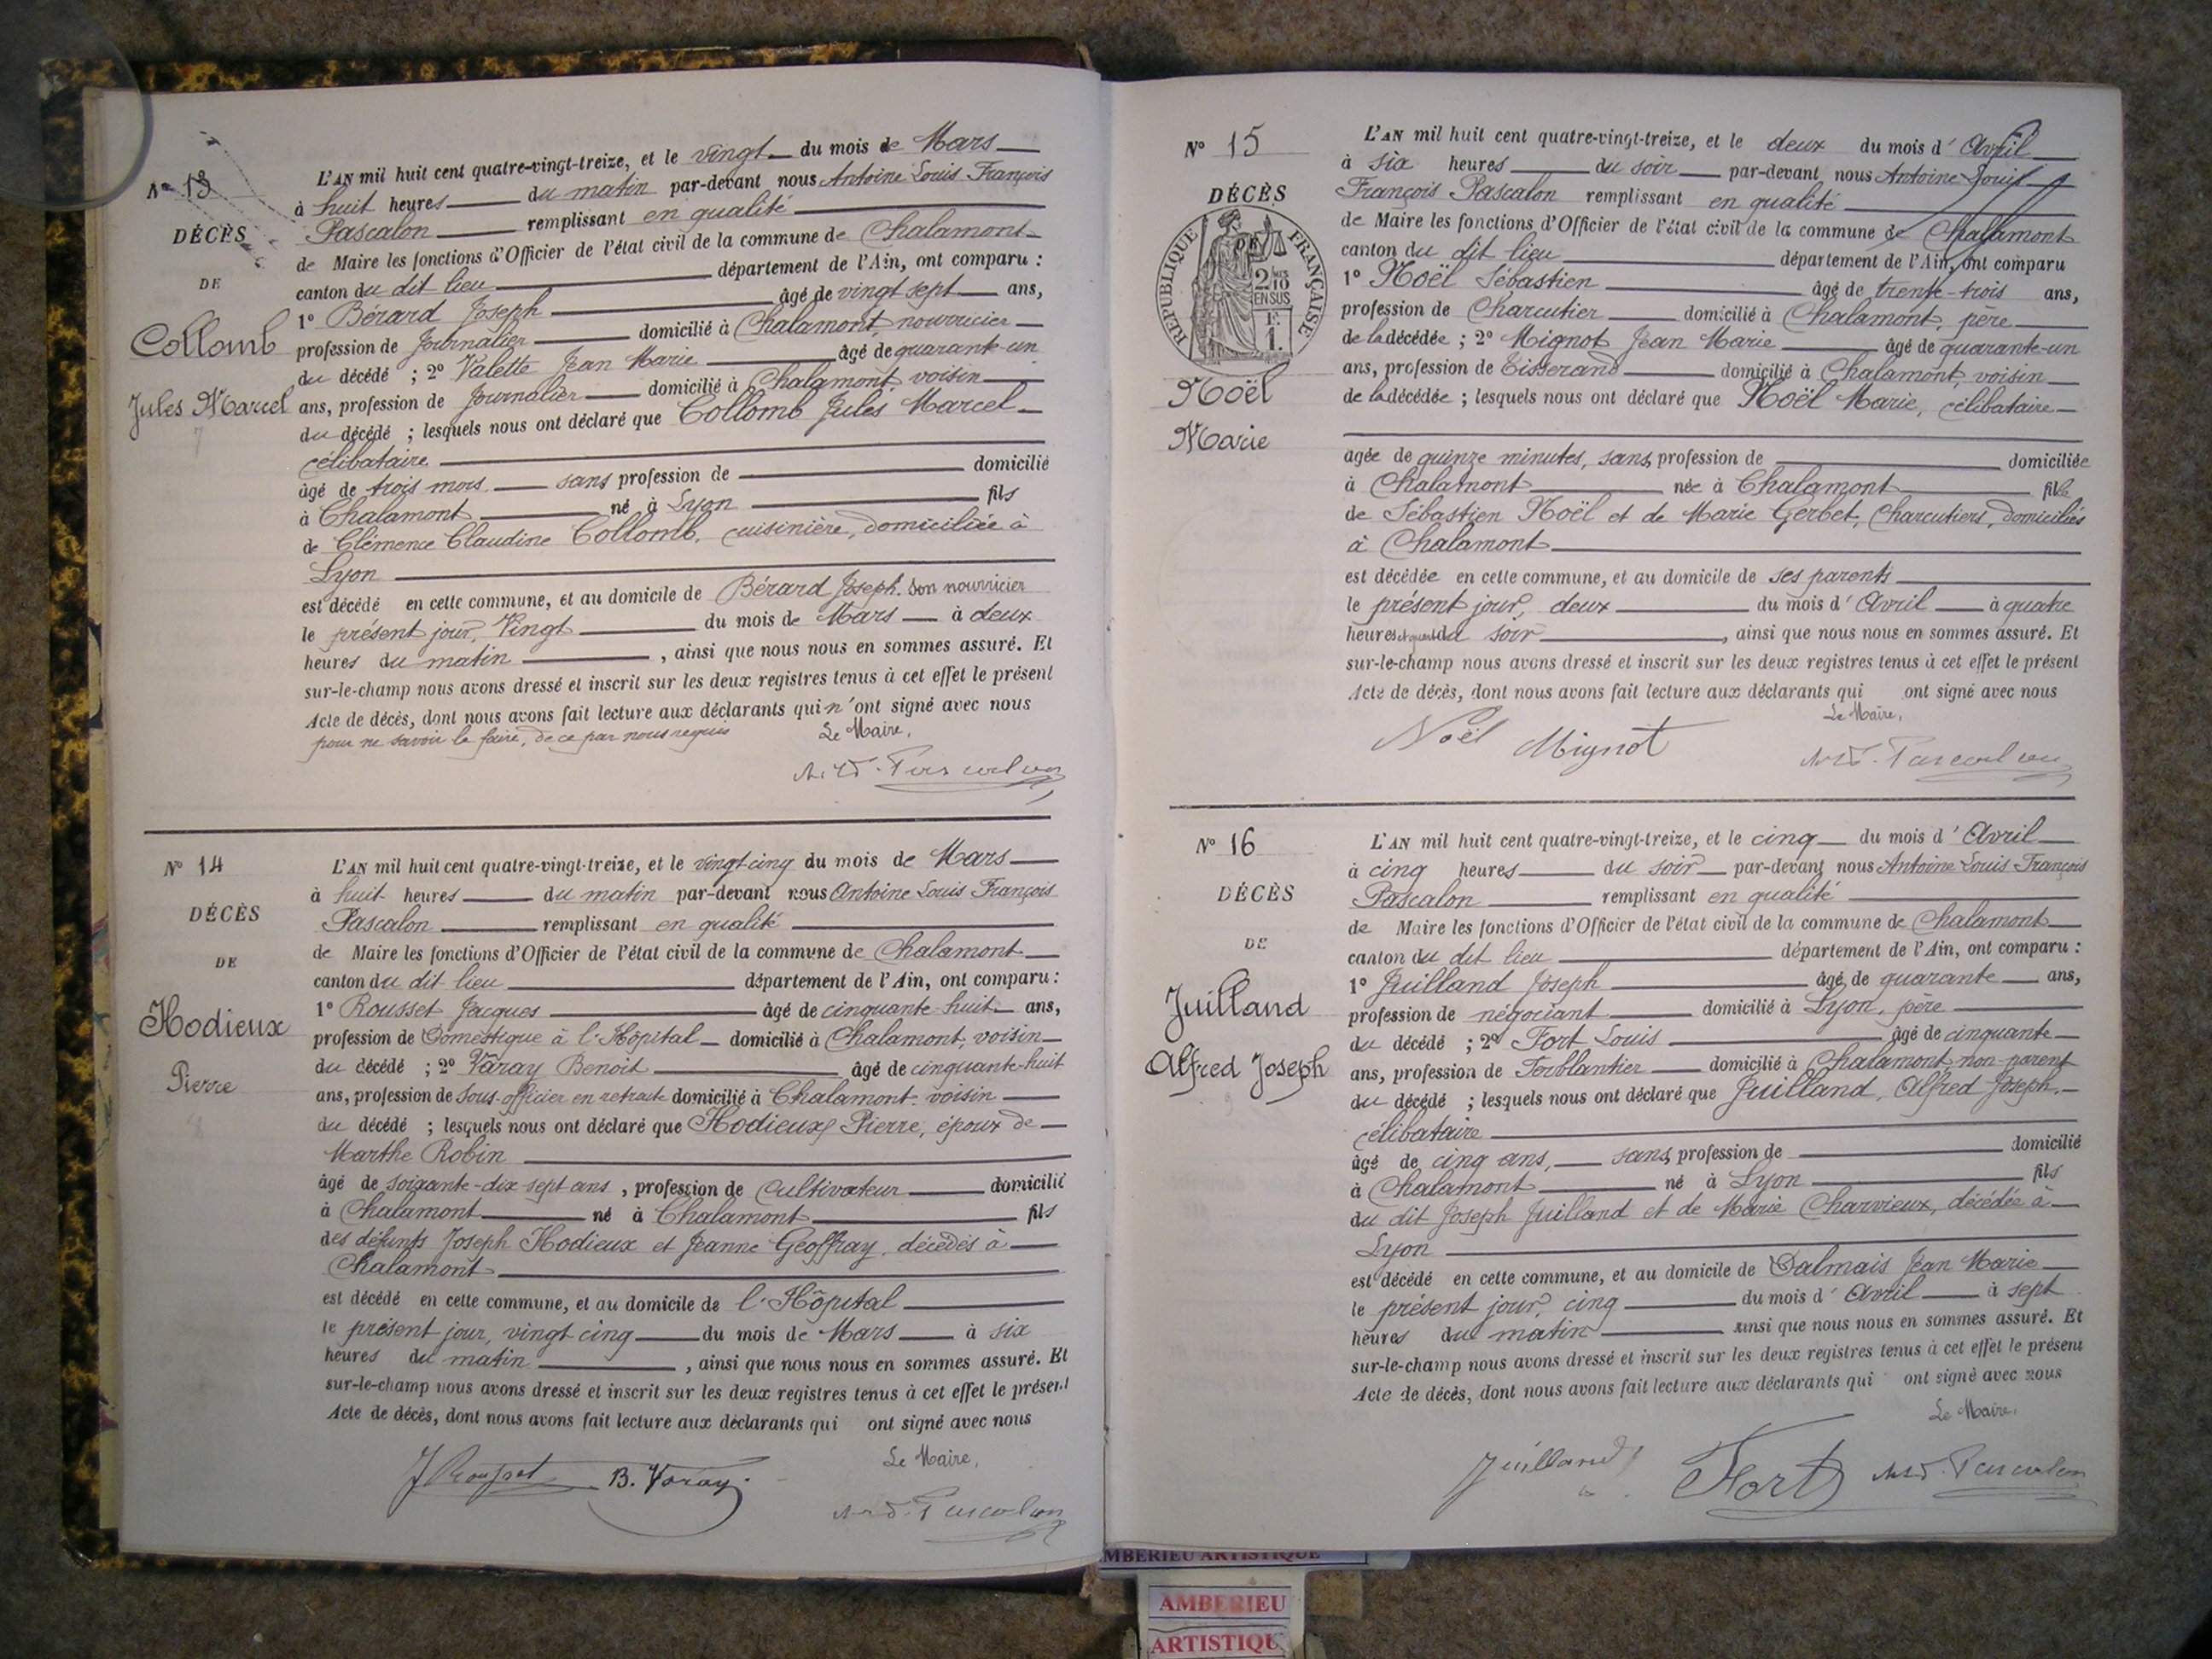 Nº 13
DÉCÈS
DE
Collomb
Jules Marcel
L'AN mil huit cent quatre-vingt-treize, et le vingt du mois de Mars
à huit heures du matin par-devant nous Antoine Louis François
Pascalon remplissant en qualité
de Maire les fonctions d'Officier de l'état civil de la commune de Chalamont
canton du dit lieu département de l'Ain, ont comparu :
1º Bérard Joseph âgé de vingt sept ans,
profession de Journalier domicilié à Chalamont, nourricier
du décédé ; 2º Valette Jean Marie âgé de quarante-un
ans, profession de Journalier domicilié à Chalamont, voisin
du décédé ; lesquels nous ont déclaré que Collomb Jules Marcel
célibataire
âgé de trois mois sans profession de domicilié
à Chalamont né à Lyon fils
de Clémence Claudine Collomb, cuisinière, domiciliée à
Lyon
est décédé en cette commune, et au domicile de Bérard Joseph. son nourricier
le présent jour, Vingt du mois de Mars à deux
heures du matin , ainsi que nous nous en sommes assuré. Et
sur-le-champ nous avons dressé et inscrit sur les deux registres tenus à cet effet le présent
Acte de décès, dont nous avons fait lecture aux déclarants qui n'ont signé avec nous
pour ne savoir le faire, de ce par nous requis Le Maire,
Pascalon
Nº 14
DÉCÈS
DE
Hodieux
Pierre
L'AN mil huit cent quatre-vingt-treize, et le vingt-cinq du mois de Mars
à huit heures du matin par-devant nous Antoine Louis François
Pascalon remplissant en qualité
de Maire les fonctions d'Officier de l'état civil de la commune de Chalamont
canton du dit lieu département de l'Ain, ont comparu :
1º Rousset Jacques âgé de cinquante-huit ans,
profession de Domestique à l'Hôpital domicilié à Chalamont, voisin
du décédé ; 2º Varay Benoit âgé de cinquante-huit
ans, profession de Sous-officier en retraite domicilié à Chalamont. voisin
du décédé ; lesquels nous ont déclaré que Hodieux Pierre, époux de
Marthe Robin
âgé de soixante-dix-sept ans , profession de Cultivateur domicilié
à Chalamont né à Chalamont fils
des défunts Joseph Hodieux et Jeanne Geoffray, décédés à
Chalamont
est décédé en cette commune, et au domicile de l'Hôpital
le présent jour, vingt cinq du mois de Mars à six
heures du matin , ainsi que nous nous en sommes assuré. Et
sur-le-champ nous avons dressé et inscrit sur les deux registres tenus à cet effet le présent
Acte de décès, dont nous avons fait lecture aux déclarants qui ont signé avec nous
Le Maire,
J Rousset B. Varay. Pascalon
Nº 15
DÉCÈS
REPUBLIQUE FRANÇAISE
2/10
EN SUS
F.
1.
Noël
Marie
L'AN mil huit cent quatre-vingt-treize, et le deux du mois d'Avril
à six heures du soir par-devant nous Antoine Louis
François Pascalon remplissant en qualité
de Maire les fonctions d'Officier de l'état civil de la commune de Chalamont
canton du dit lieu département de l'Ain, ont comparu
1º Noël Sébastien âgé de trente-trois ans,
profession de Charcutier domicilié à Chalamont, père
de la décédée ; 2º Mignot Jean Marie âgé de quarante-un
ans, profession de Tisserand domicilié à Chalamont, voisin
de la décédée ; lesquels nous ont déclaré que Noël Marie, célibataire
agée de quinze minutes, sans profession de domiciliée
à Chalamont née à Chalamont fille
de Sébastien Noël et de Marie Gerbet, Charcutiers, domiciliés
à Chalamont
est décédée en cette commune, et au domicile de ses parents
le présent jour, deux du mois d'Avril à quatre
heures et quart du soir , ainsi que nous nous en sommes assuré. Et
sur-le-champ nous avons dressé et inscrit sur les deux registres tenus à cet effet le présent
Acte de décès, dont nous avons fait lecture aux déclarants qui ont signé avec nous
Le Maire,
Noël Mignot Pascalon
Nº 16
DÉCÈS
DE
Juilland
Alfred Joseph
L'AN mil huit cent quatre-vingt-treize, et le cinq du mois d'Avril
à cinq heures du soir par-devant nous Antoine Louis François
Pascalon remplissant en qualité
de Maire les fonctions d'Officier de l'état civil de la commune de Chalamont
canton du dit lieu département de l'Ain, ont comparu :
1º Juilland Joseph âgé de quarante ans,
profession de négociant domicilié à Lyon, père
du décédé ; 2º Fort Louis âgé de cinquante
ans, profession de Ferblantier domicilié à Chalamont, non-parent
du décédé ; lesquels nous ont déclaré que Juilland, Alfred Joseph,
célibataire
âgé de cinq ans, sans profession de domicilié
à Chalamont né à Lyon fils
du dit Joseph Juilland et de Marie Charvieux, décédée à
Lyon
est décédé en cette commune, et au domicile de Dalmais Jean Marie
le présent jour, cinq du mois d'Avril à sept
heures du matin ainsi que nous nous en sommes assuré. Et
sur-le-champ nous avons dressé et inscrit sur les deux registres tenus à cet effet le présent
Acte de décès, dont nous avons fait lecture aux déclarants qui ont signé avec nous
Le Maire,
Juilland Fort Pascalon
AMBERIEU ARTISTIQUE
AMBERIEU
ARTISTIQU